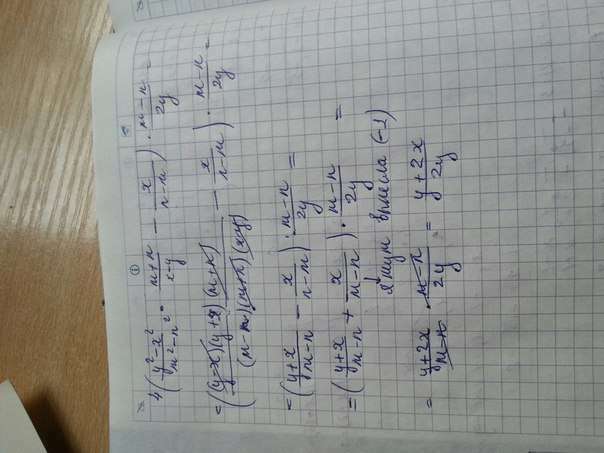 4 ( (y²-x²)/(m²-n²) · (m+n)/(x-y) - x/(n-m) ) · (m-n)/2y =
= ( (y-x)(y+x)(m+n)/(m-n)(m+n)(x-y) - x/(n-m) ) · (m-n)/2y =
= ( (y+x)/(m-n) - x/(n-m) ) · (m-n)/2y =
= ( (y+x)/(m-n) + x/(m-n) ) · (m-n)/2y =
я тут вынесла (-1)
= (y+2x)/(m-n) · (m-n)/2y = (y+2x)/2y